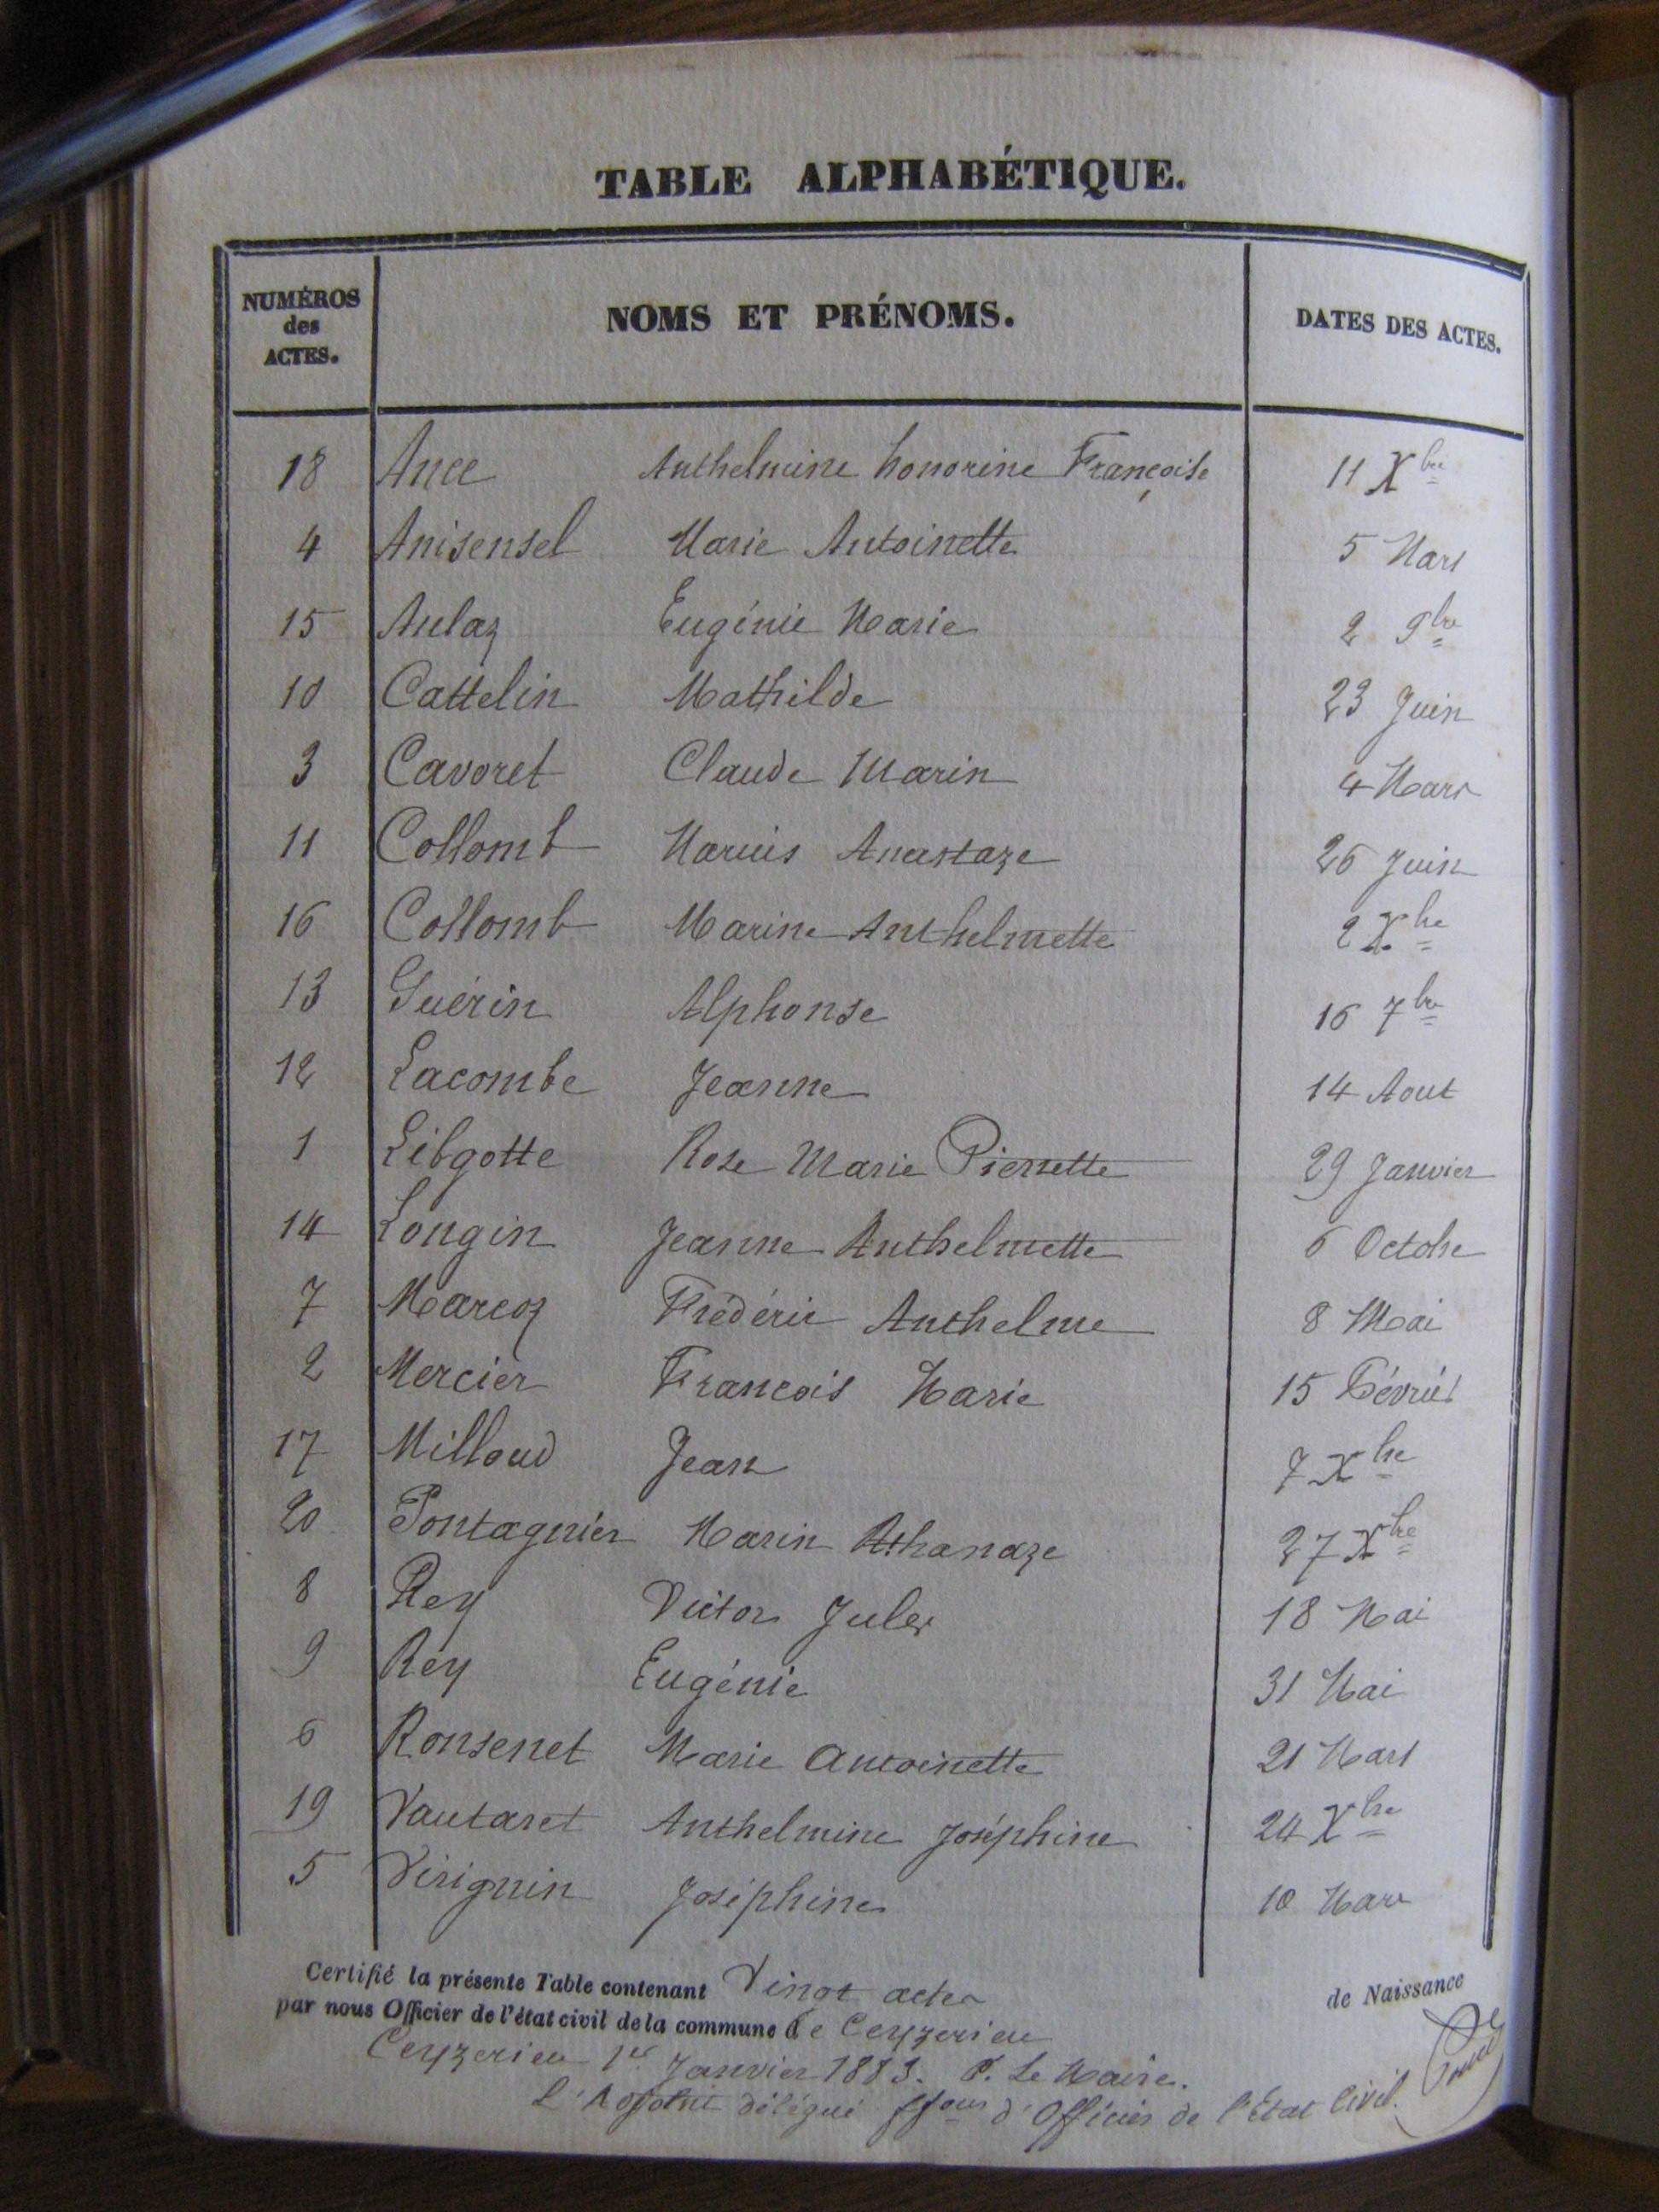 TABLE ALPHABÉTIQUE.
NUMÉROS des ACTES. NOMS ET PRÉNOMS. DATES DES ACTES.
18 Ance Anthelmine honorine Françoise 11 Xbre
4 Anisensel Marie Antoinette 5 Mars
15 Aulaz Eugénie Marie 2 9bre
10 Cattelin Mathilde 23 Juin
3 Cavoret Claude Marin 4 Mars
11 Collomb Marius Anastaze 26 Juin
16 Collomb Marine Anthelmette 2 Xbre
13 Guérin Alphonse 16 7bre
12 Lacombe Jeanne 14 Aout
1 Libgotte Rose Marie Pierrette 29 Janvier
14 Longin Jeanne Anthelmette 6 Octobre
7 Marcoz Frédéric Anthelme 8 Mai
2 Mercier Francois Marie 15 Février
17 Milloud Jean 7 Xbre
20 Pontagnier Marin Athanaze 27 Xbre
8 Rey Victor Jules 18 Mai
9 Rey Eugénie 31 Mai
6 Ronsenet Marie Antoinette 21 Mars
19 Vautaret Anthelmine Joséphine 24 Xbre
5 Virignin Joséphine 10 Mars
Certifié la présente Table contenant Vingt actes de Naissance
par nous Officier de l'état civil de la commune de Ceyzerieu
Ceyzerieu 1er Janvier 1883. P. Le Maire.
L'Adjoint délégué ffons d'Officier de l'Etat Civil.